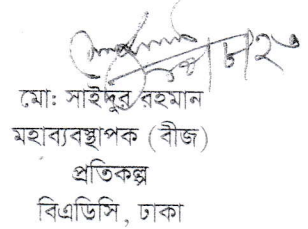 মো: সাইদুর রহমান
মহাব্যবস্থাপক (বীজ)
প্রতিকল্প
বিএডিসি, ঢাকা